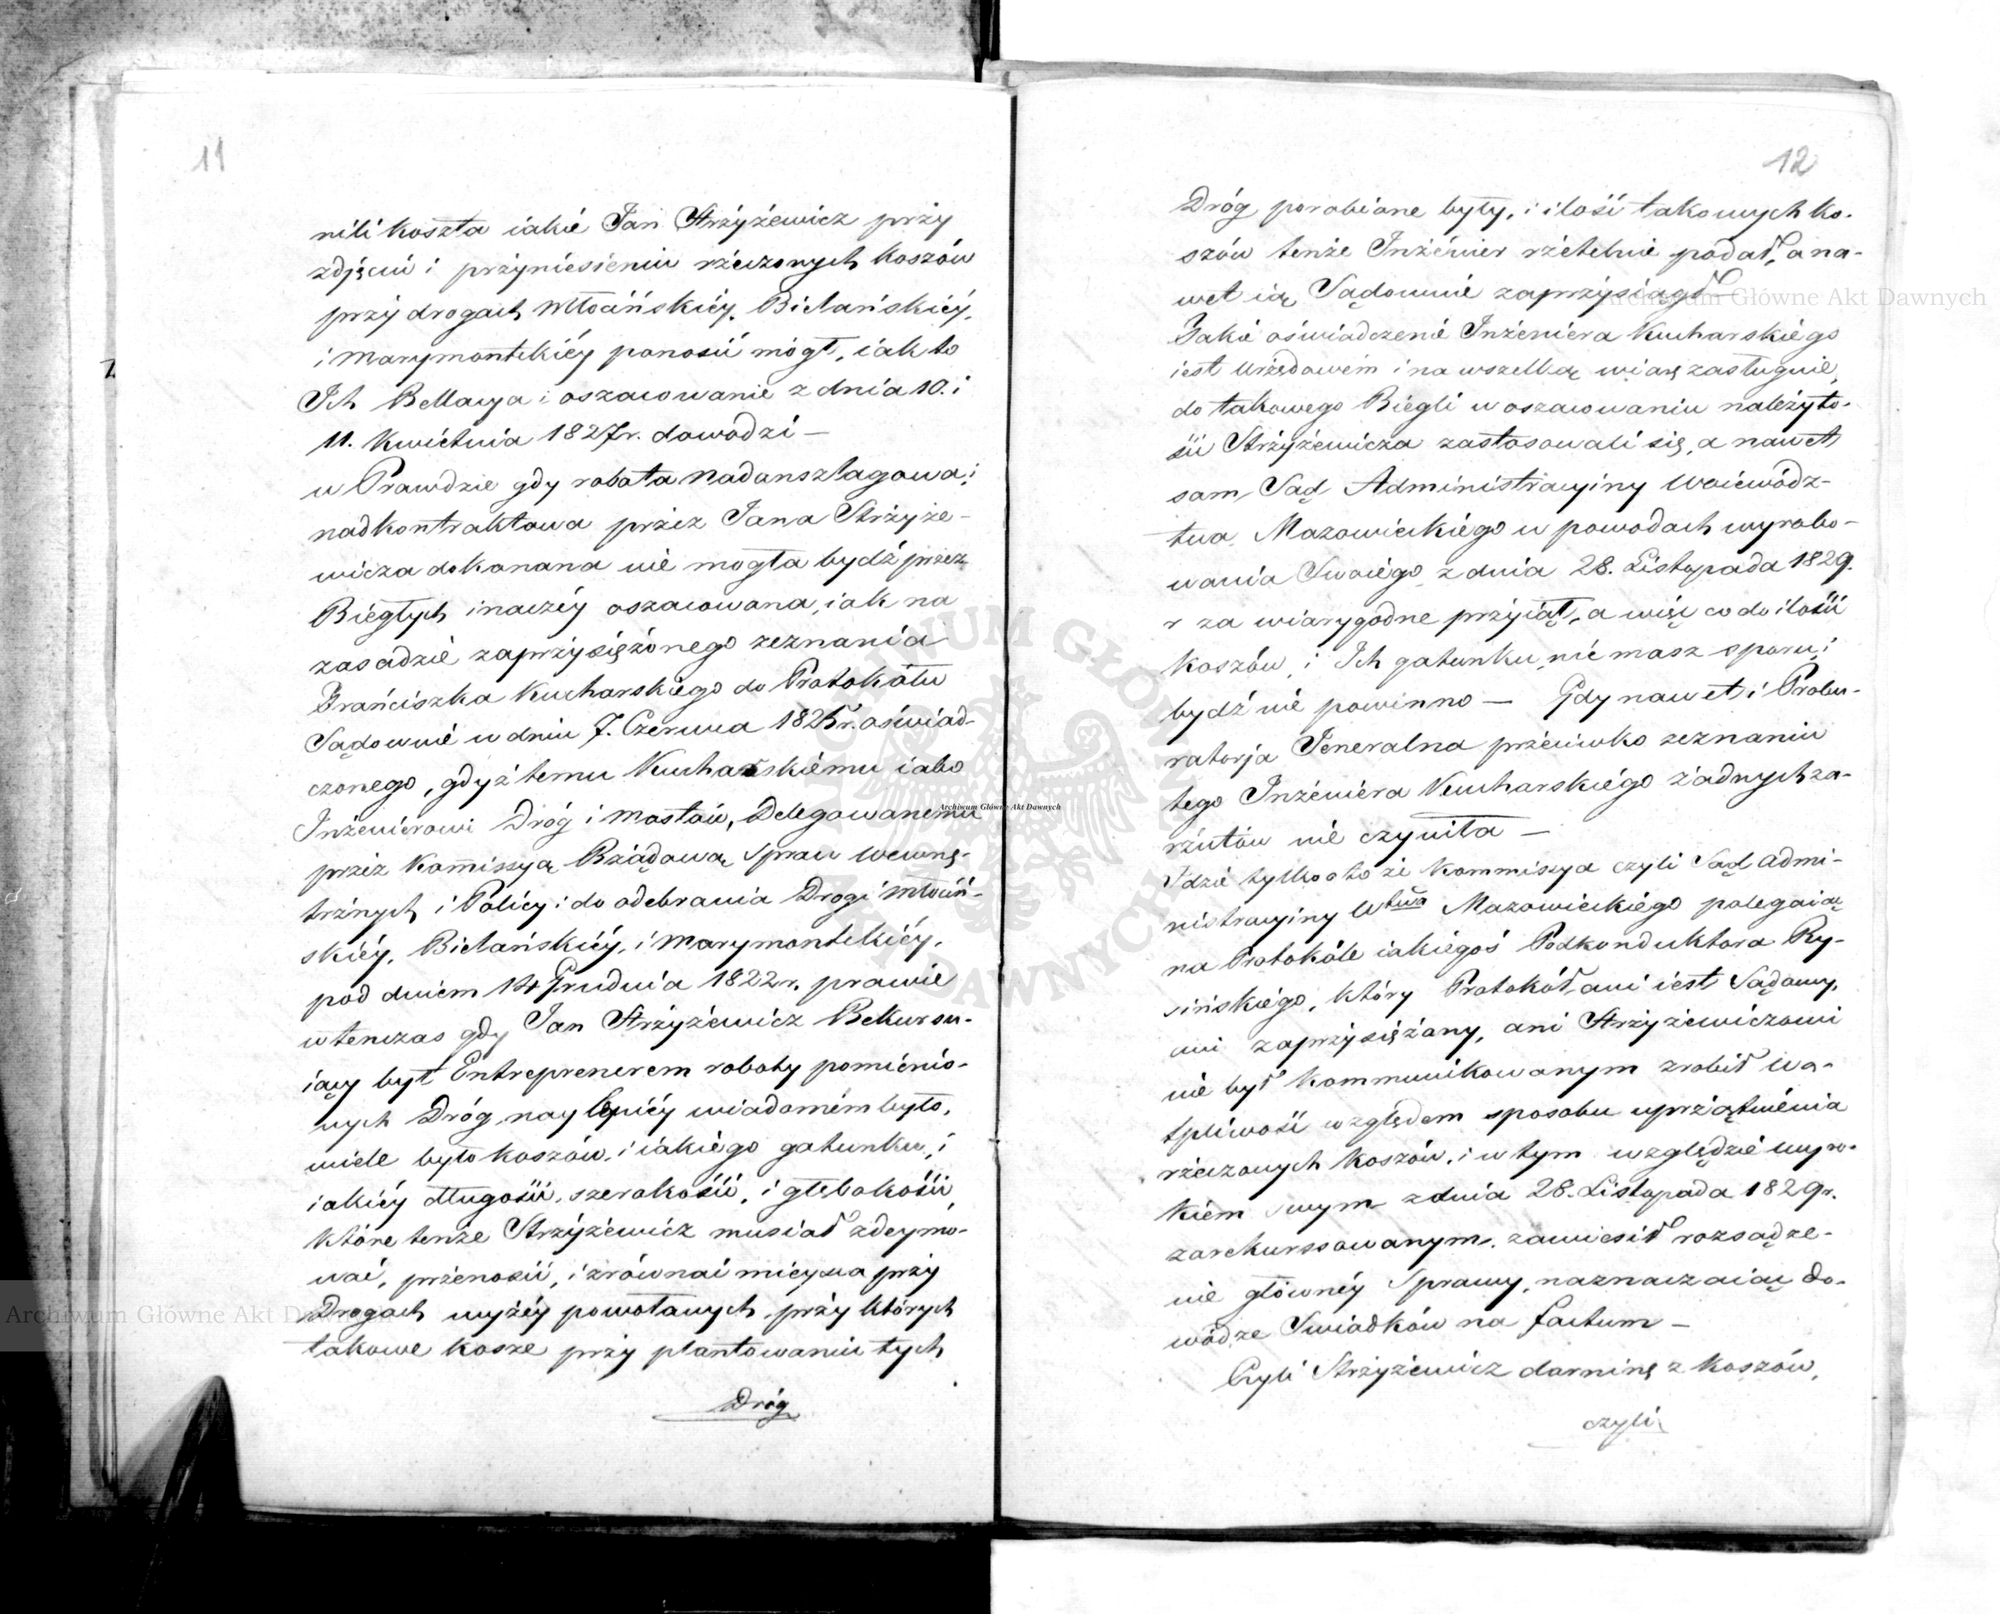 11
nili koszta iakié Jan Strżyżewicz przy
zdjęciu i przyniesieniu rzeczonych koszów
przy drogach Młocińskiéy, Bielańskiéy,
i Marymontskiéy ponosić mógł, iak to
Ich Rellacya i oszacowanie z dnia 10. i
11. Kwietnia 1827r. dowodzi —
w Prawdzie gdy robota nadanszlagowa i
nadkontraktowa przez Jana Strżyże-
wicza dokonana nie mogła bydź przez
Biegłych inaczéy oszacowana, iak na
zasadzie zaprzysiężonego zeznania
Franciszka Kucharskiego do Protokółu
Sądownie w dniu 7. Czerwca 1825r. oświad-
czonego, gdyż temu Kucharskiému iako
Inżenierowi Dróg i Mostów, Delegowanemu
przez Kommissyą Rządową Spraw wewnę-
trznych i Policyi do odebrania Drogi Młociń-
skiéy, Bielańskiéy, i Marymontskiéy,
pod dniem 14 Grudnia 1822r. prawie
wtenczas gdy Jan Strżyżewicz Rekursu-
iący był Entreprenerem roboty pomiénio-
nych Dróg, naylepiéy wiadomém było,
wiele było koszów, i iakiégo gatunku, i
iakiéy długości, szerokości, i głębokości,
które tenże Strżyżewicz musiał zdeymo-
wać, przenosić, i zrównać mieysca przy
Drogach wyżéy powołanych, przy których
takowe kosze przy plantowaniu tych
Dróg
12
Dróg porobione były, i ilość takowych ko-
szów tenże Inżénier rzetelnie podał, a na-
wet ią Sądownie zaprzysiągł —
Jakié oświadczenié Inżeniera Kucharskiégo
iest Urzędowém i na wszelką wiarę zasługuie,
do takowego Biegli w oszacowaniu należyto-
ści Strżyżewicza zastosowali się, a nawet
sam Sąd Administracyiny Woiewódz-
twa Mazowieckiégo w powodach wyroko-
wania Swoiégo z dnia 28. Listopada 1829.
r za wiarygodne przyiął, a więc co do ilości
koszów, i Ich gatunku nié masz sporu, i
bydź nié powinno — Gdy nawet i Proku-
ratorja Jeneralna przeciwko zeznaniu
tego Inżéniéra Kucharskiégo żadnych za-
rzutów nié czyniła —
Idzie tylko o to że Kommissya czyli Sąd Admi-
nistracyiny Wtwa Mazowieckiégo polegaiąc
na Protokóle iakiégoś Podkonduktora Ry-
sińskiégo, który Protokół ani iest Sądowy,
ani zaprzysiężany, ani Strżyżewiczowi
nié był kommunikowanym zrobił wą-
tpliwość względem sposobu uprzątniénia
rzeczonych koszów, i w tym względzié wyro-
kiém swym z dnia 28. Listopada 1829r.
zarekurssowanym, zawiesił rozsądze-
nie głównéy Sprawy, naznaczaiąc do-
wód ze Swiadków na factum —
Czyli Strżyżewicz darninę z koszów,
czyli
Archiwum Główne Akt Dawnych
Archiwum Główne Akt Dawnych
Archiwum Główne Akt Dawnych
ARCHIWUM GŁÓWNE AKT DAWNYCH